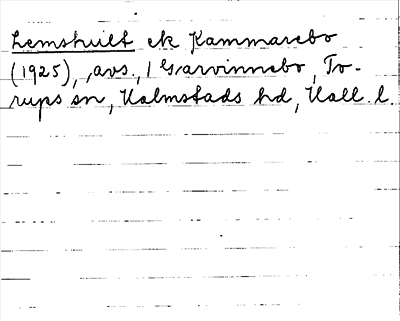 Lemshult ek Kammarebo
(1925), avs., i Garvinnebo, To-
rups sn, Halmstads hd, Hall. l.